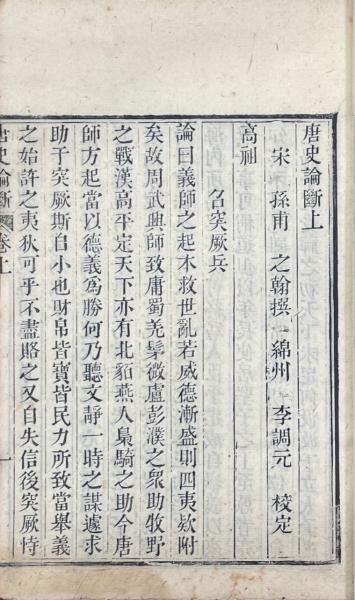 唐史論斷上
宋 孫甫 之翰撰 綿州 李調元 校定
高祖
召突厥兵
論曰義師之起本救世亂若威德漸盛則四夷欵附
矣故周武興師致庸蜀羌髳微盧彭濮之衆助牧野
之戰漢高平定天下亦有北貊燕人梟騎之助今唐
師方起當以德義為勝何乃聽文靜一時之謀遽求
助于突厥斯自小也財帛皆寶皆民力所致當舉義
之始許之夷狄可乎不盡賂之又自失信後突厥恃
唐史論斷 卷上 一